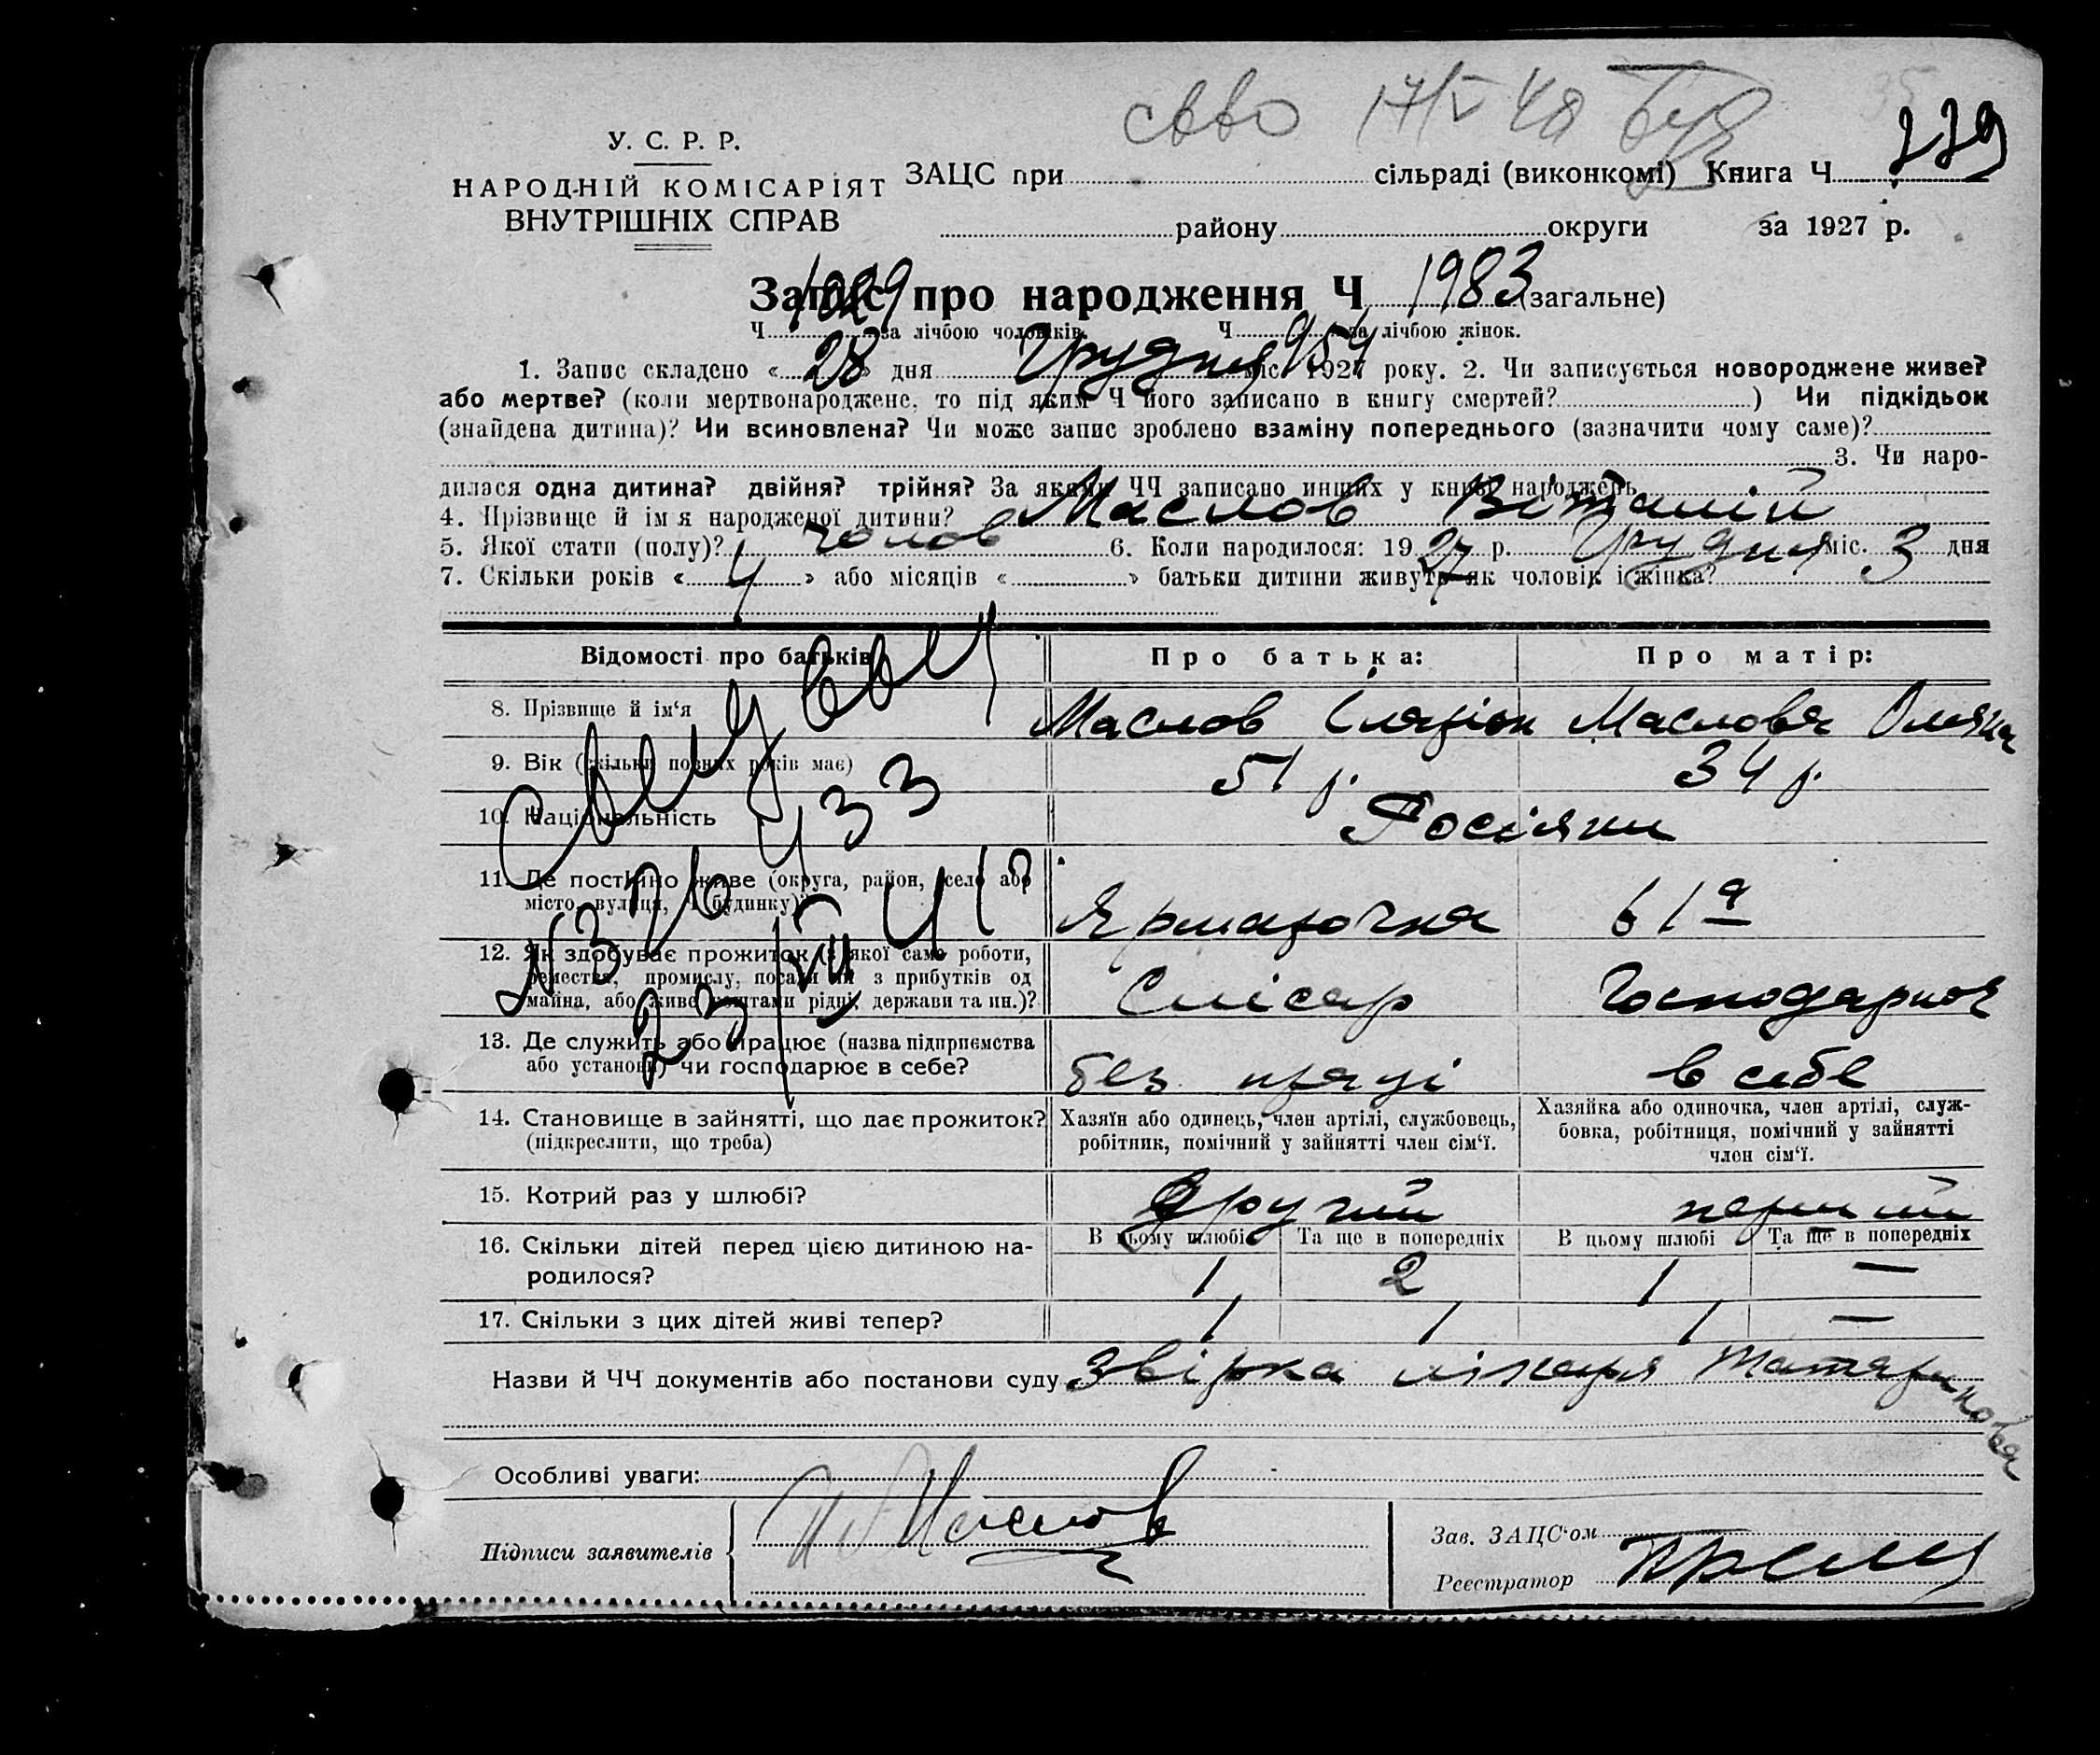 сьво 17/V 48
У. С. Р. Р.
НАРОДНІЙ КОМІСАРІЯТ
ВНУТРІШНІХ СПРАВ
ЗАЦС при сільраді (виконкомі) Книга Ч 229
району округи за 1927 р.
Запис про народження Ч 1983 (загальне)
Ч 1029 за лічбою чоловіків. Ч 954 за лічбою жінок.
1. Запис складено « 28 » дня Грудня міс. 1927 року. 2. Чи записується новороджене живе?
або мертве? (коли мертвонароджене, то під яким Ч його записано в книгу смертей? ) Чи підкідьок
(знайдена дитина)? Чи всиновлена? Чи може запис зроблено взаміну попереднього (зазначити чому саме)?
3. Чи наро-
дилася одна дитина? двійня? трійня? За якими ЧЧ записано инших у книзі народжень
4. Прізвище й ім'я народженої дитини? Маслов Віталій
5. Якої стати (полу)? чолов 6. Коли народилося: 1927 р. Грудня міс. 3 дня
7. Скільки років « 4 » або місяців « » батьки дитини живуть як чоловік і жінка?
Відомості про батьків Про батька: Про матір:
8. Прізвище й ім'я Маслов Іляріон Маслова Оляна
9. Вік (скільки повних років має) 51 р. 34 р.
10. Національність Росіяни
11. Де постійно живе (округа, район, село або
місто, вулиця, Ч будинку)? Ярмарочна 61 а
12. Як здобуває прожиток (з якої саме роботи,
ремества, промислу, посади чи з прибутків од
майна, або живе коштами рідні, держави та ин.)? Слісар Господарює
13. Де служить або працює (назва підприємства
або установи) чи господарює в себе? без праці в себе
14. Становище в зайнятті, що дає прожиток?
(підкреслити, що треба)
Хазяїн або одинець, член артілі, службовець,
робітник, помічний у зайнятті член сім'ї.
Хазяйка або одиночка, член артілі, служ-
бовка, робітниця, помічний у зайнятті
член сім'ї.
15. Котрий раз у шлюбі? другий перший
16. Скільки дітей перед цією дитиною на-
родилося?
В цьому шлюбі Та ще в попередніх В цьому шлюбі Та ще в попередніх
1 2 1 —
17. Скільки з цих дітей живі тепер? 1 1 1 —
Назви й ЧЧ документів або постанови суду Звірка лікаря Татаринова
Особливі уваги:
Підписи заявителів И Маслов
Зав. ЗАЦС'ом
Реєстратор